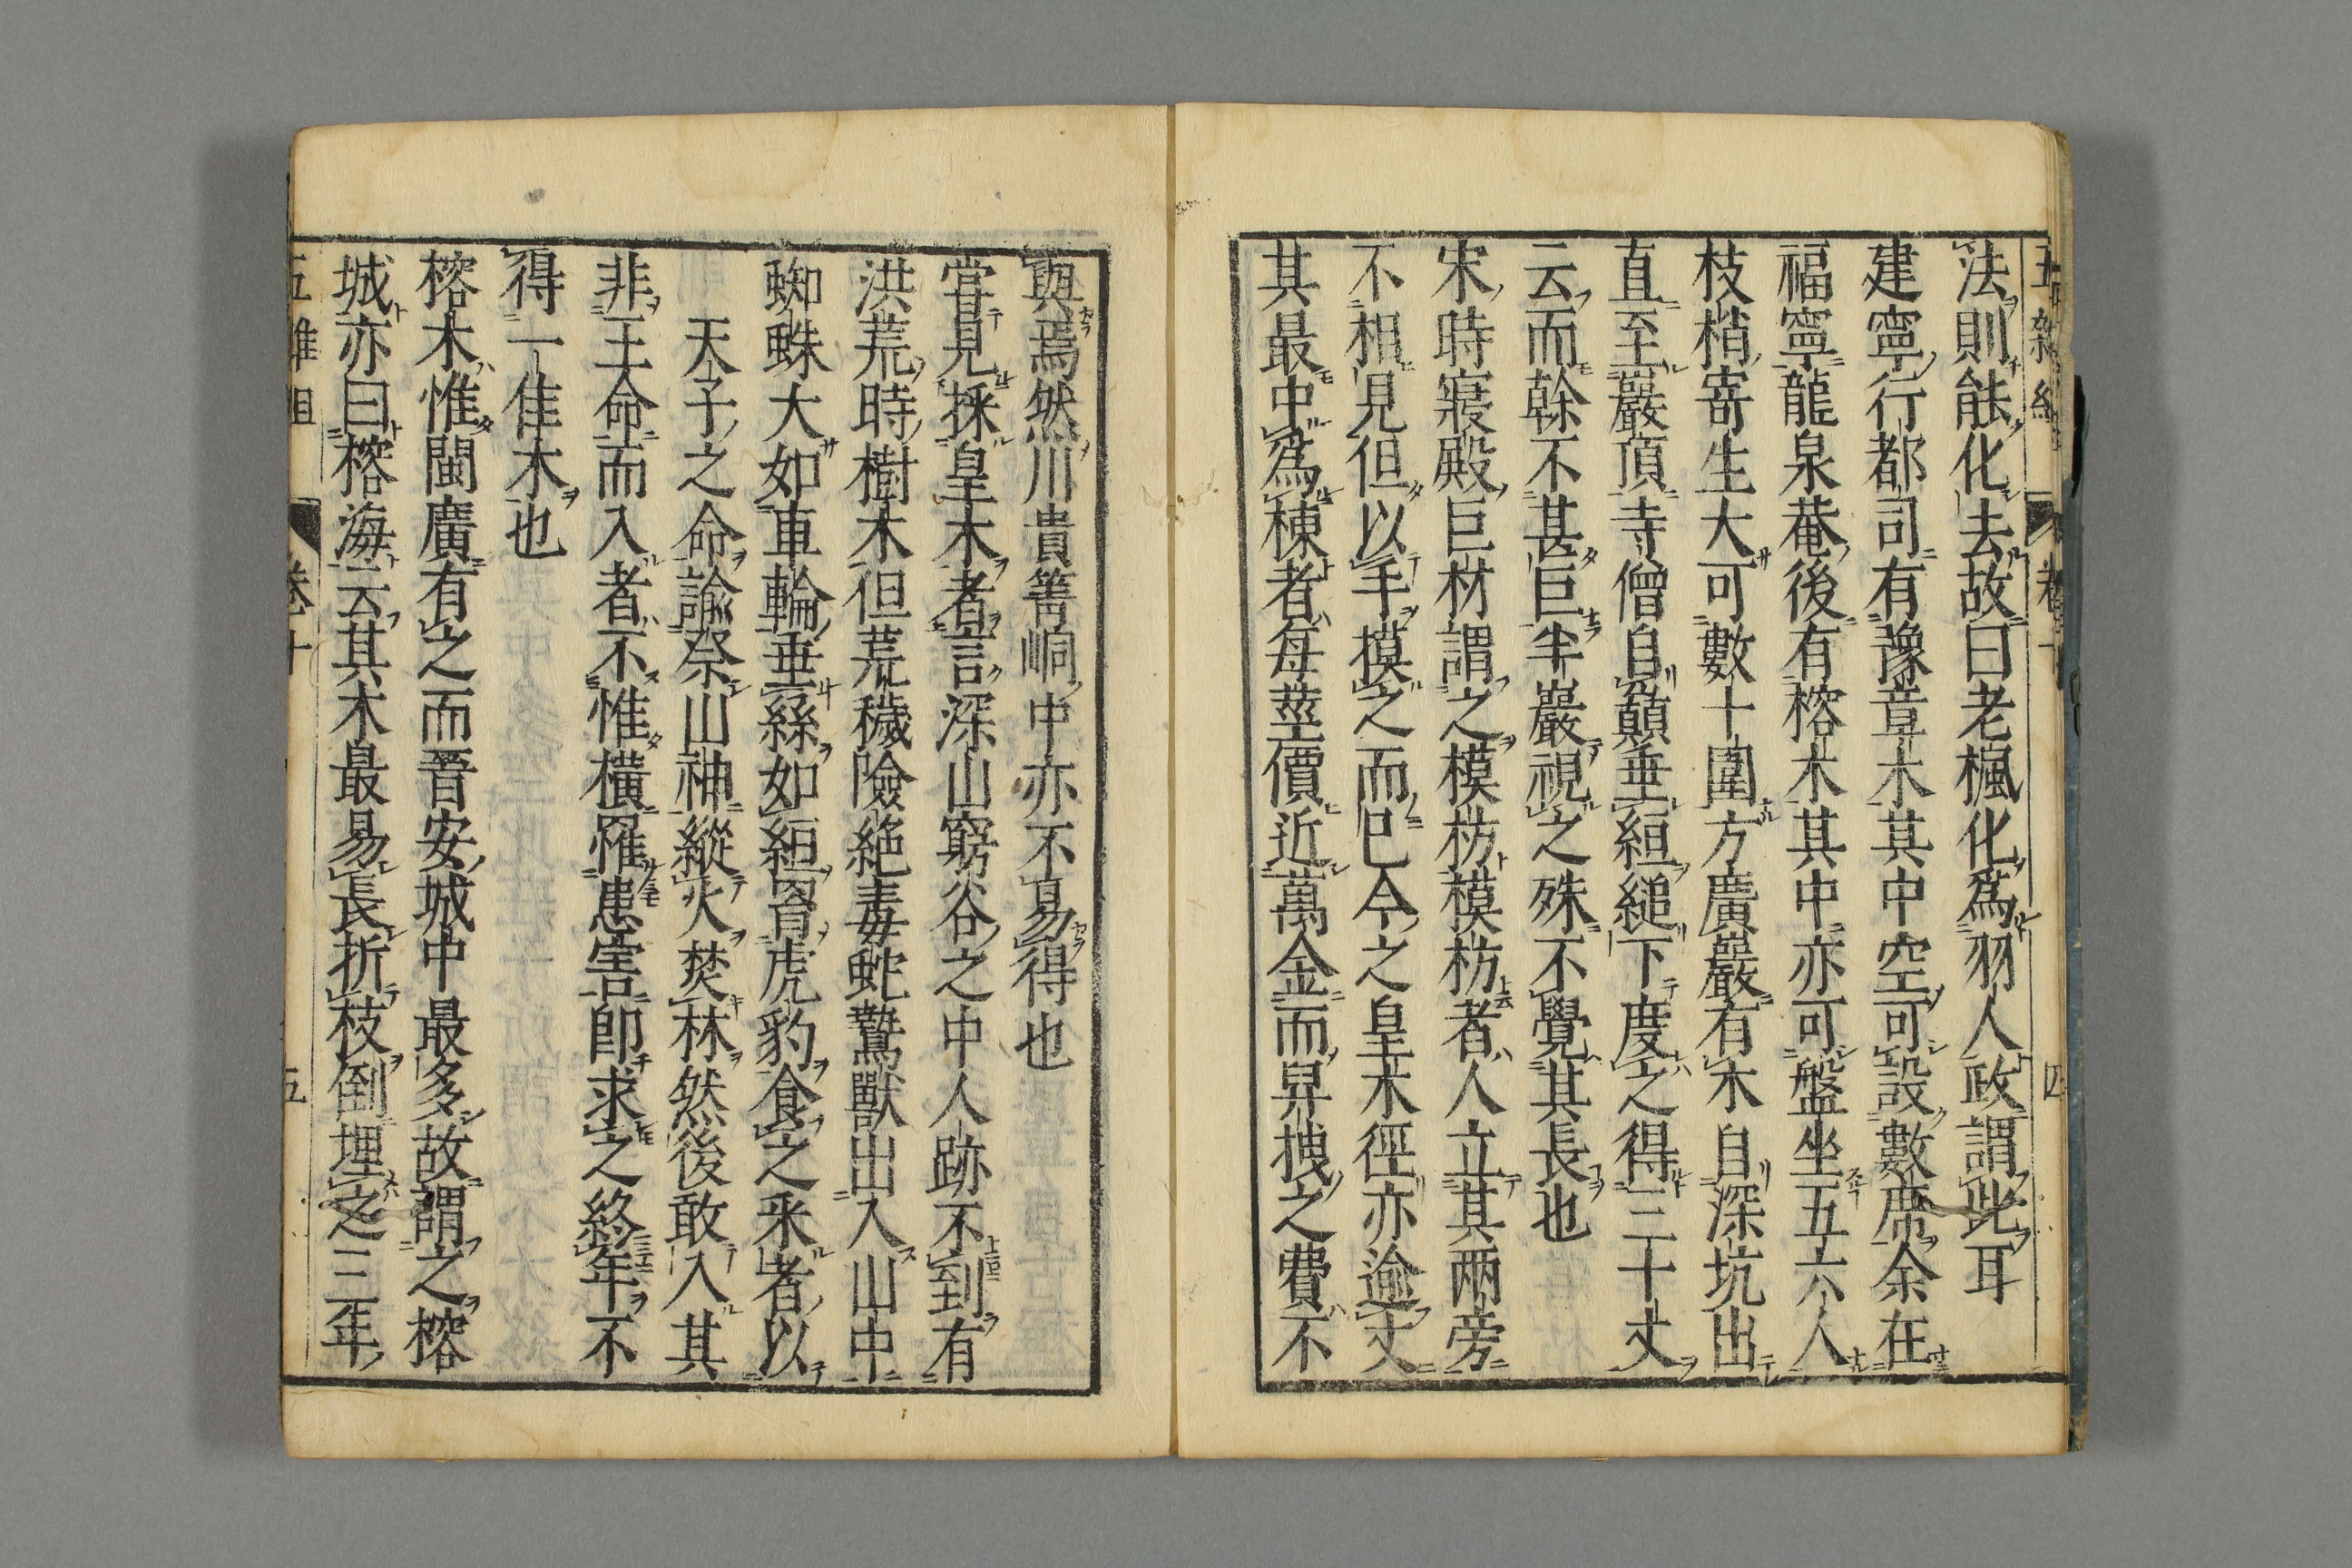 五雜組 卷十 四
法則能化去故曰老楓化爲羽人政謂此耳
建寧行都司有豫章木其中空可設數席余在
福寧龍泉菴後有榕木其中亦可盤坐五六人
枝梢寄生大可數十圍方廣巖有木自深坑出
直至巖頂寺僧自巔垂絙縋下度之得三十丈
云而榦不甚巨半巖視之殊不覺其長也
宋時寢殿巨材謂之模枋模枋者人立其两旁
不相見但以手摸之而已今之皇木徑亦逾丈
其最中爲棟者每莖價近萬金而舁拽之費不
與焉然川貴箐峒中亦不易得也
嘗見採皇木者言深山窮谷之中人跡不到有
洪荒時樹木但荒穢險絶毒蛇鷙獸出入山中
蜘蛛大如車輪垂絲如絙罥虎豹食之采者以
天子之命諭祭山神縱火焚林然後敢入其
非王命而入者不惟橫罹患害即求之終年不
得一佳木也
榕木惟閩廣有之而晋安城中最多故謂之榕
城亦曰榕海云其木最易長折枝倒埋之三年
五雜組 卷十 五